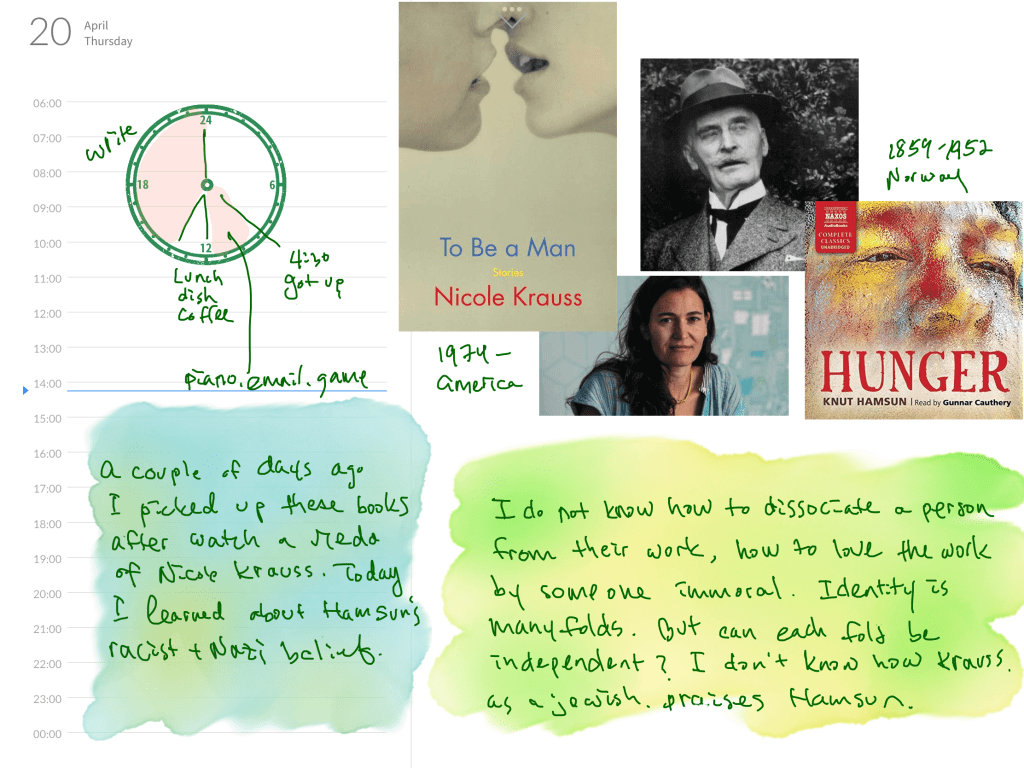 20
April
Thursday
06:00
07:00
08:00
09:00
10:00
11:00
12:00
13:00
14:00
15:00
16:00
17:00
18:00
19:00
20:00
21:00
22:00
23:00
00:00
write
24
18
6
12
Lunch
dish
coffee
4:30
got up
piano. email. game
To Be a Man
Stories
Nicole Krauss
1859-1952
Norway
NAXOS
AudioBooks
COMPLETE
CLASSICS
UNABRIDGED
HUNGER
KNUT HAMSUN | Read by Gunnar Cauthery
1974-
America
A couple of days ago
I picked up these books
after watch a
of Nicole Krauss. Today
I learned about Hamsun's
racist + Nazi beliefs.
I do not know how to dissociate a person
from their work, how to love the work
by someone immoral. Identity is
manyfolds. But can each fold be
independent? I don't know how Krauss.
as a jewish. praises Hamsun.